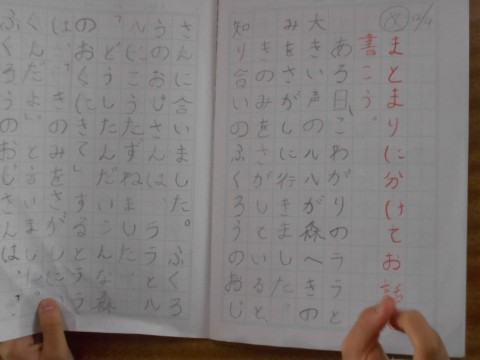 12/4
まとまりに分けてお話
書こう。
ある日、こわがりのララと
大きい声のルルが森へきの
みをさがしに行きました。
きのみをさがしていると、
知り合いのふくろうのおじ
さんに合いました。ふくろ
うのおじさんは、ララとル
ルにこうたずねました。
「どうしたんだいこんな森
のおくにきて。」するとララ
は、「きのみをさがしに
くんだよ。」と言いました。
ふくろうのおじさんは、